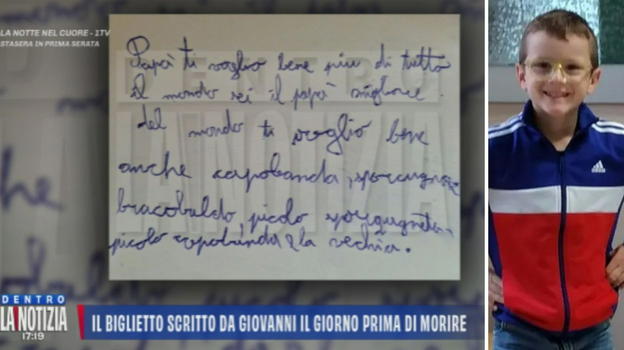 LA NOTTE NEL CUORE - 1TV
STASERA IN PRIMA SERATA
Papà ti voglio bene piu di tutto
il mondo sei il papà migliore
del mondo ti voglio bene
anche capobanda,
bracobaldo picolo
picolo capobanda la vechia.
DENTRO
LA NOTIZIA
DENTRO
LA NOTIZIA
17:19
IL BIGLIETTO SCRITTO DA GIOVANNI IL GIORNO PRIMA DI MORIRE
adidas